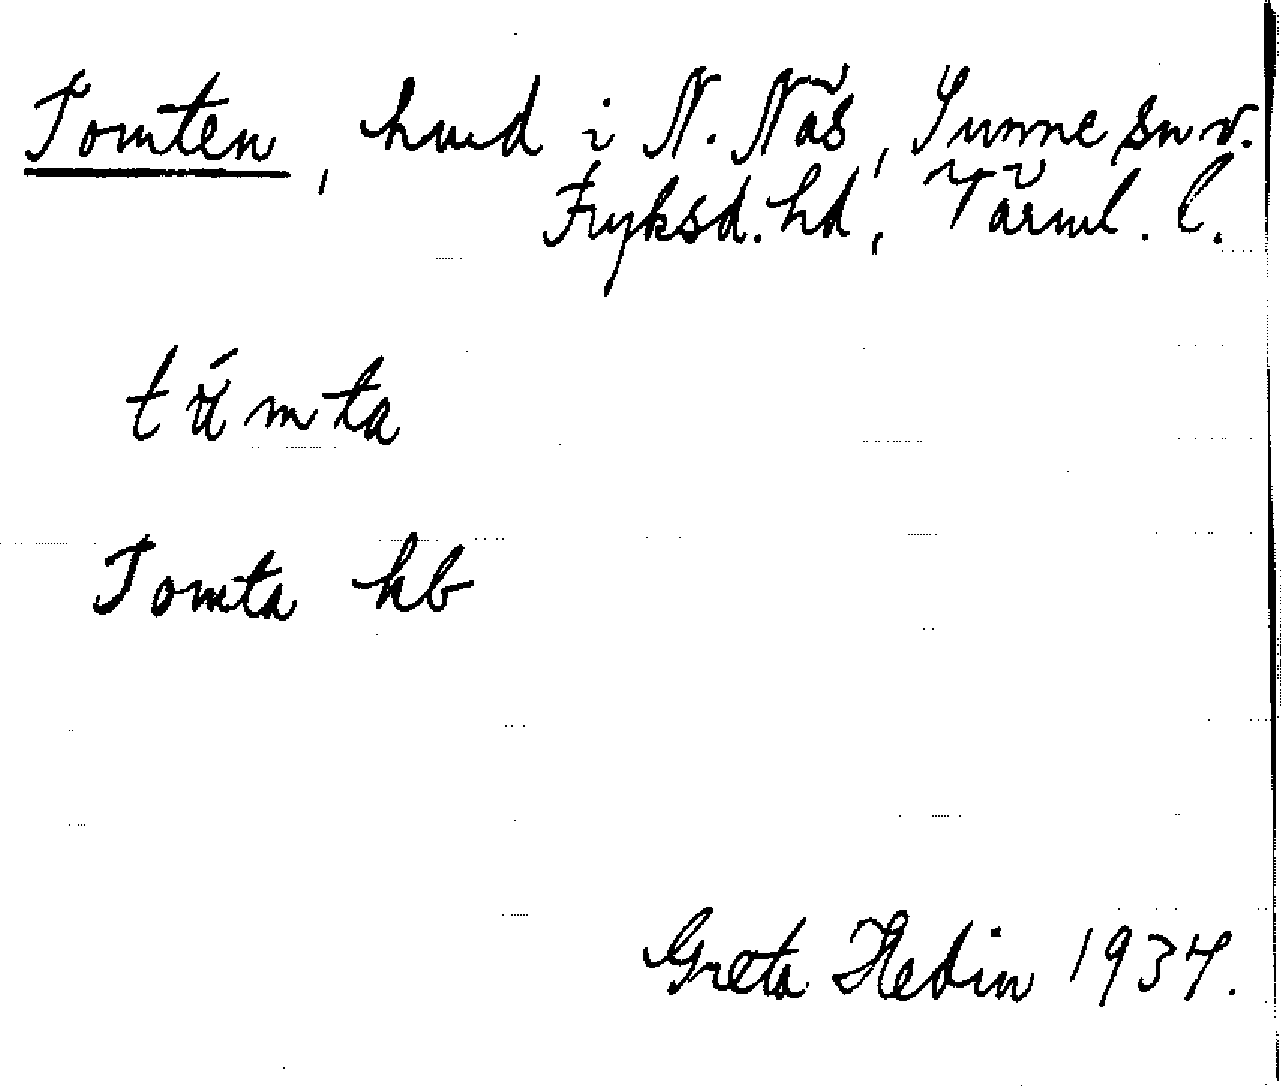 Tomten, hmd i N. Näs, Sunne sn v.
Fryksd. hd, Värml. l.
Tomta hb
Greta Hedin 1934.